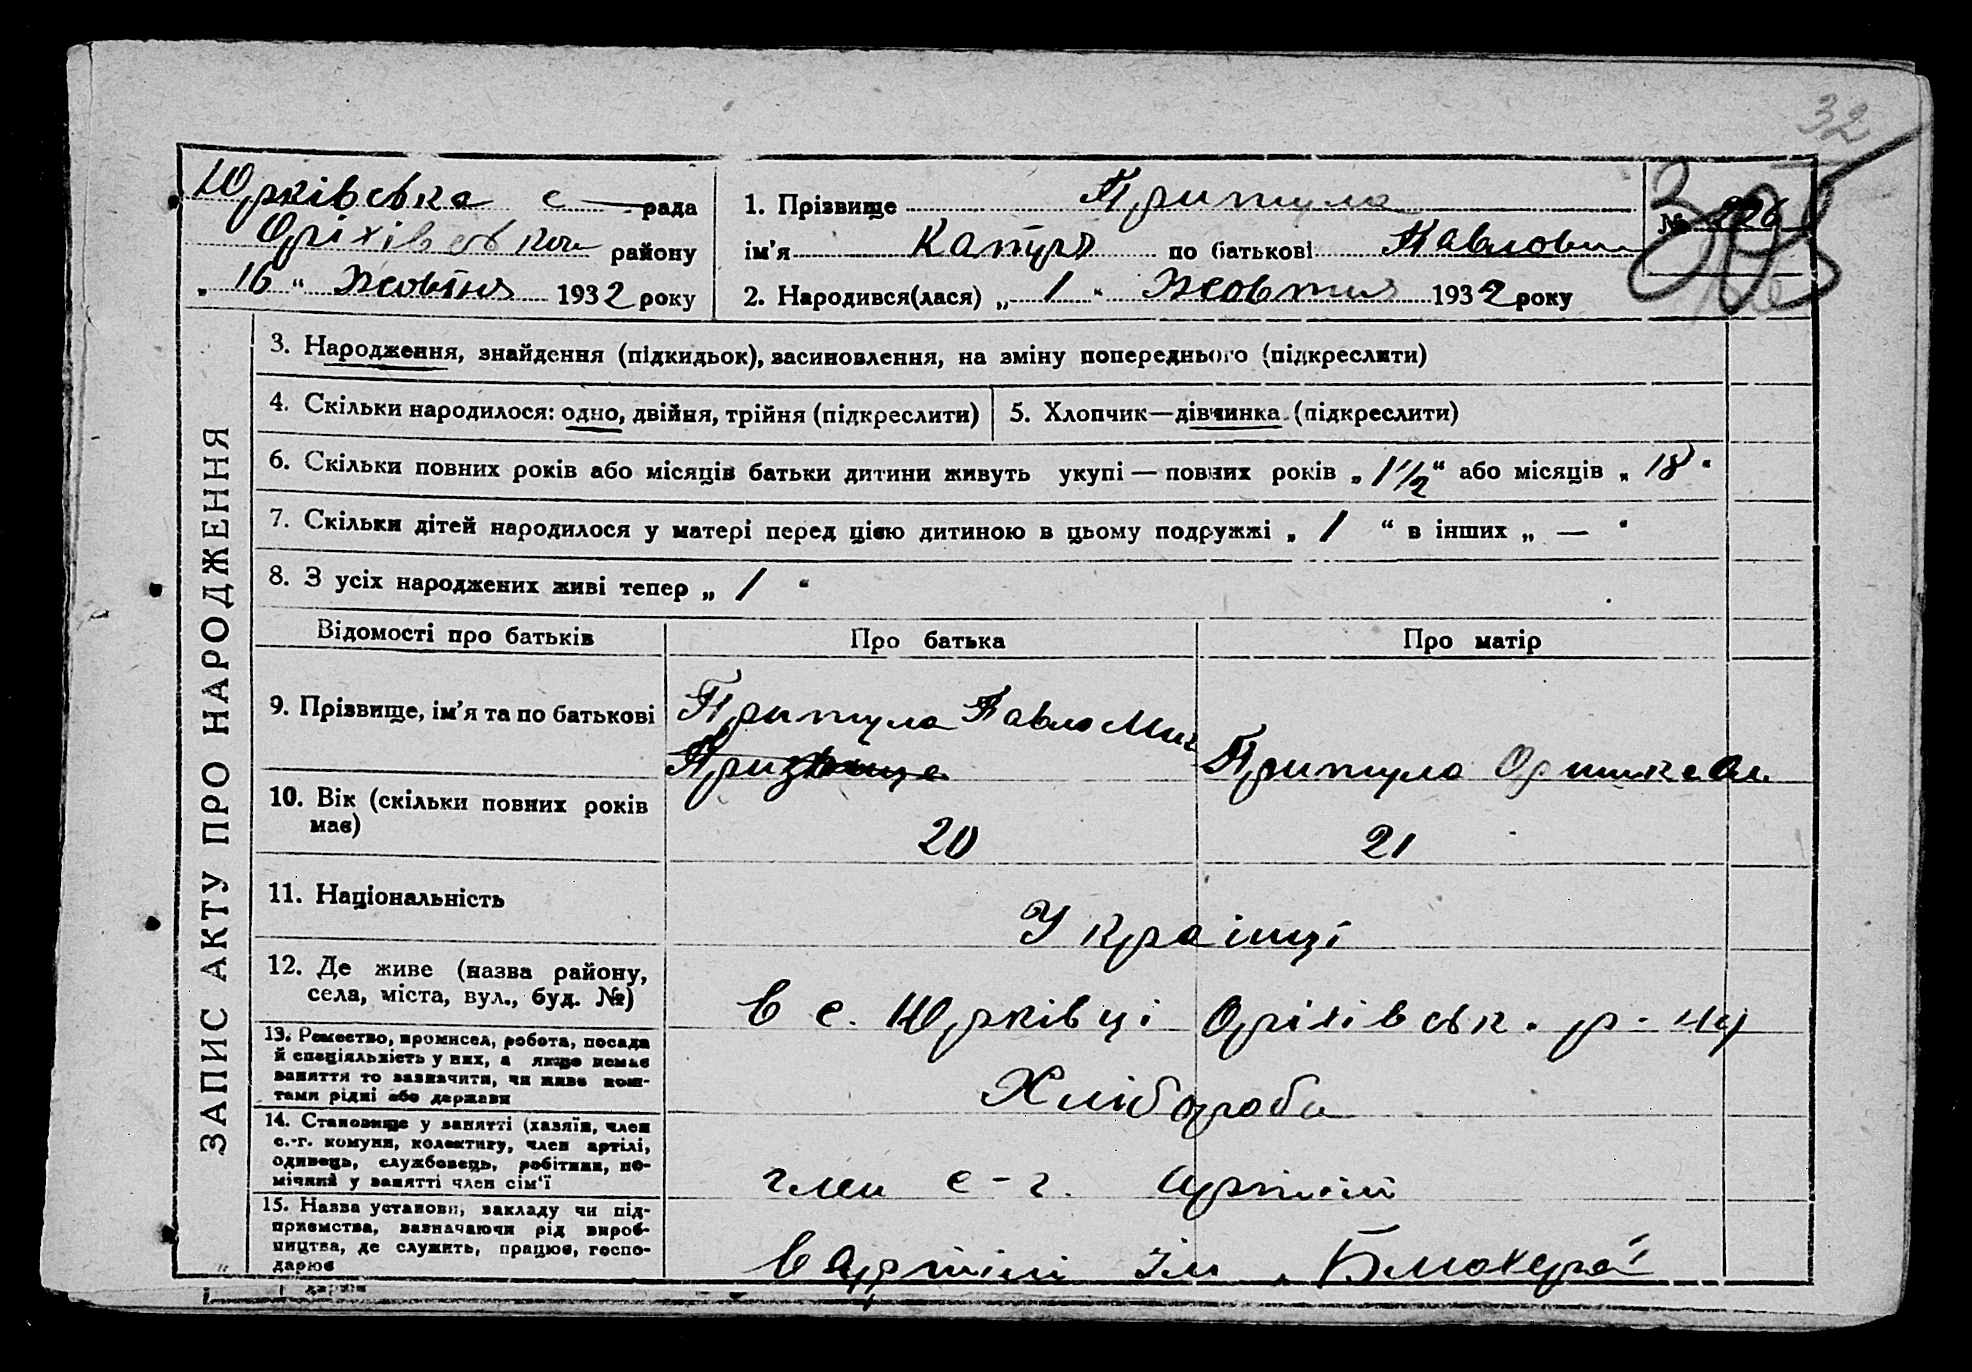 32
Юрківська с рада
Оріхівською району
„ 16 “ Жовтня 1932 року
1. Прізвище Притула
ім'я Катря по батькові Павловн
2. Народився(лася) „ 1 “ Жовтня 1932 року
№ 226
ЗАПИС АКТУ ПРО НАРОДЖЕННЯ
3. Народження, знайдення (підкидьок), васиновлення, на зміну попереднього (підкреслити)
4. Скільки народилося: одно, двійня, трійня (підкреслити)
5. Хлопчик—дівчинка (підкреслити)
6. Скільки повних років або місяців батьки дитини живуть укупі — повних років „ 1 1/2 “ або місяців „ 18 “
7. Скільки дітей народилося у матері перед цією дитиною в цьому подружжі „ 1 “ в інших „ — “
8. З усіх народжених живі тепер „ 1 “
Відомості про батьків
Про батька
Про матір
9. Прізвище, ім'я та по батькові
Притула Павло Мих
Призвище
Притула Оришка Ол.
10. Вік (скільки повних років
має)
20
21
11. Національність
Українці
12. Де живе (назва району,
села, міста, вул., буд. №)
в с. Юрківці Оріхівськ. р-ну
13. Ремество, промисел, робота, посада
й спеціяльність у них, а якщо немає
заняття то зазначити, чи живе кош-
тами рідні або держави
Хлібороби
14. Становище у занятті (хазяїн, член
с.-г. комуни, колективу, член артілі,
одинець, службовець, робітник, по-
мічний у занятті член сім'ї
член с-г. артіли
15. Назва установи, закладу чи під-
приємства, зазначаючи рід вироб-
ництва, де служить, працює, госпо-
дарює
в артіли Ім. Блюхера